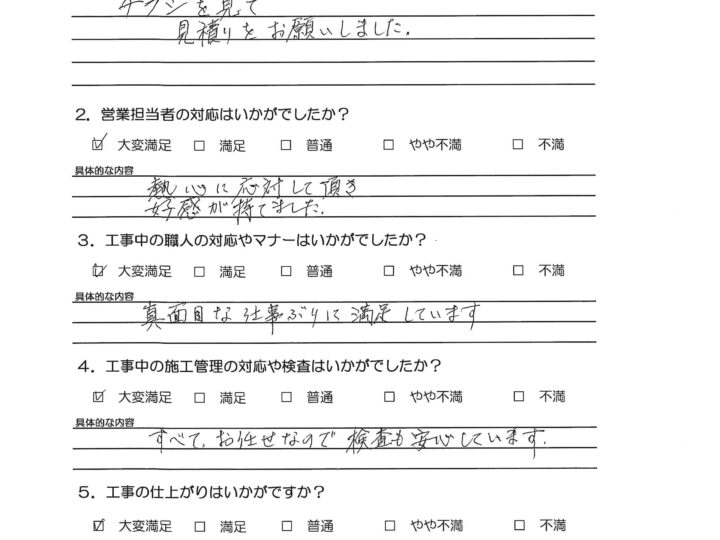 チラシを見て
見積りをお願いしました。
2．営業担当者の対応はいかがでしたか？
☑ 大変満足 □ 満足 □ 普通 □ やや不満 □ 不満
具体的な内容
熱心に応対して頂き
好感が持てました。
3．工事中の職人の対応やマナーはいかがでしたか？
☑ 大変満足 □ 満足 □ 普通 □ やや不満 □ 不満
具体的な内容
真面目な仕事ぶりに満足しています
4．工事中の施工管理の対応や検査はいかがでしたか？
☑ 大変満足 □ 満足 □ 普通 □ やや不満 □ 不満
具体的な内容
すべて、お任せなので検査も安心しています。
5．工事の仕上がりはいかがですか？
☑ 大変満足 □ 満足 □ 普通 □ やや不満 □ 不満